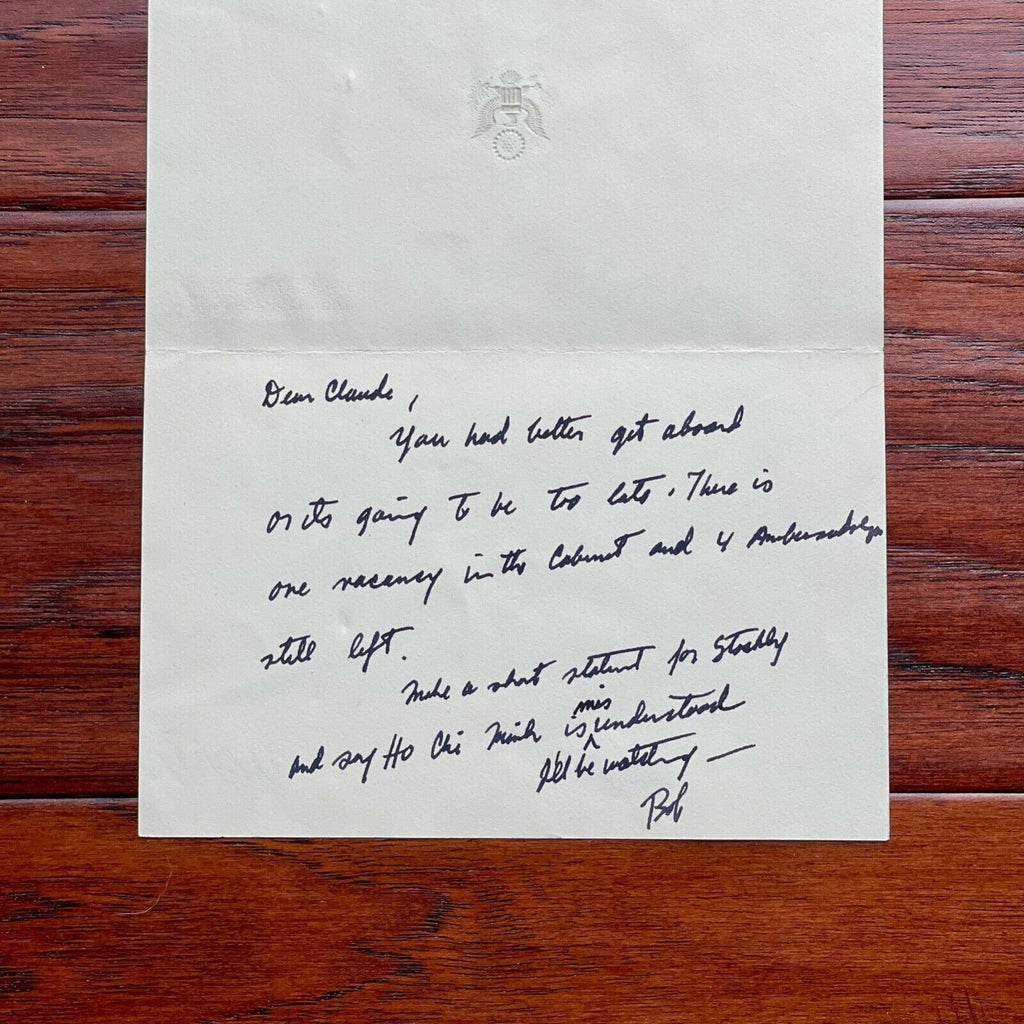 Dear Claude,
You had better get aboard
or its going to be too late. There is
one vacancy in the Cabinet and 4 Ambassadorships
still left.
Make a short statement for Stokely
and say Ho Chi Minh is misunderstood
I'll be watching —
Bob